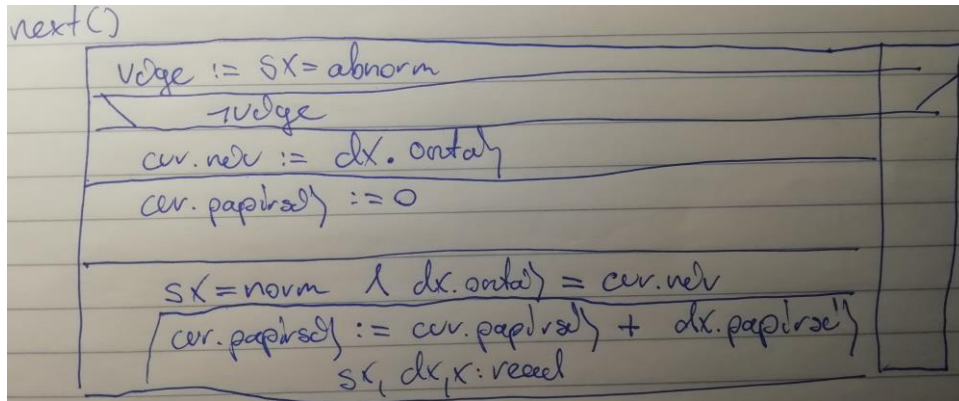 next()
vége := sx=abnorm
¬vége
cur.név := dx.osztály
cur.papírsúly := 0
sx=norm ∧ dx.osztály = cur.név
cur.papírsúly := cur.papírsúly + dx.papírsúly
sx, dx, x: read